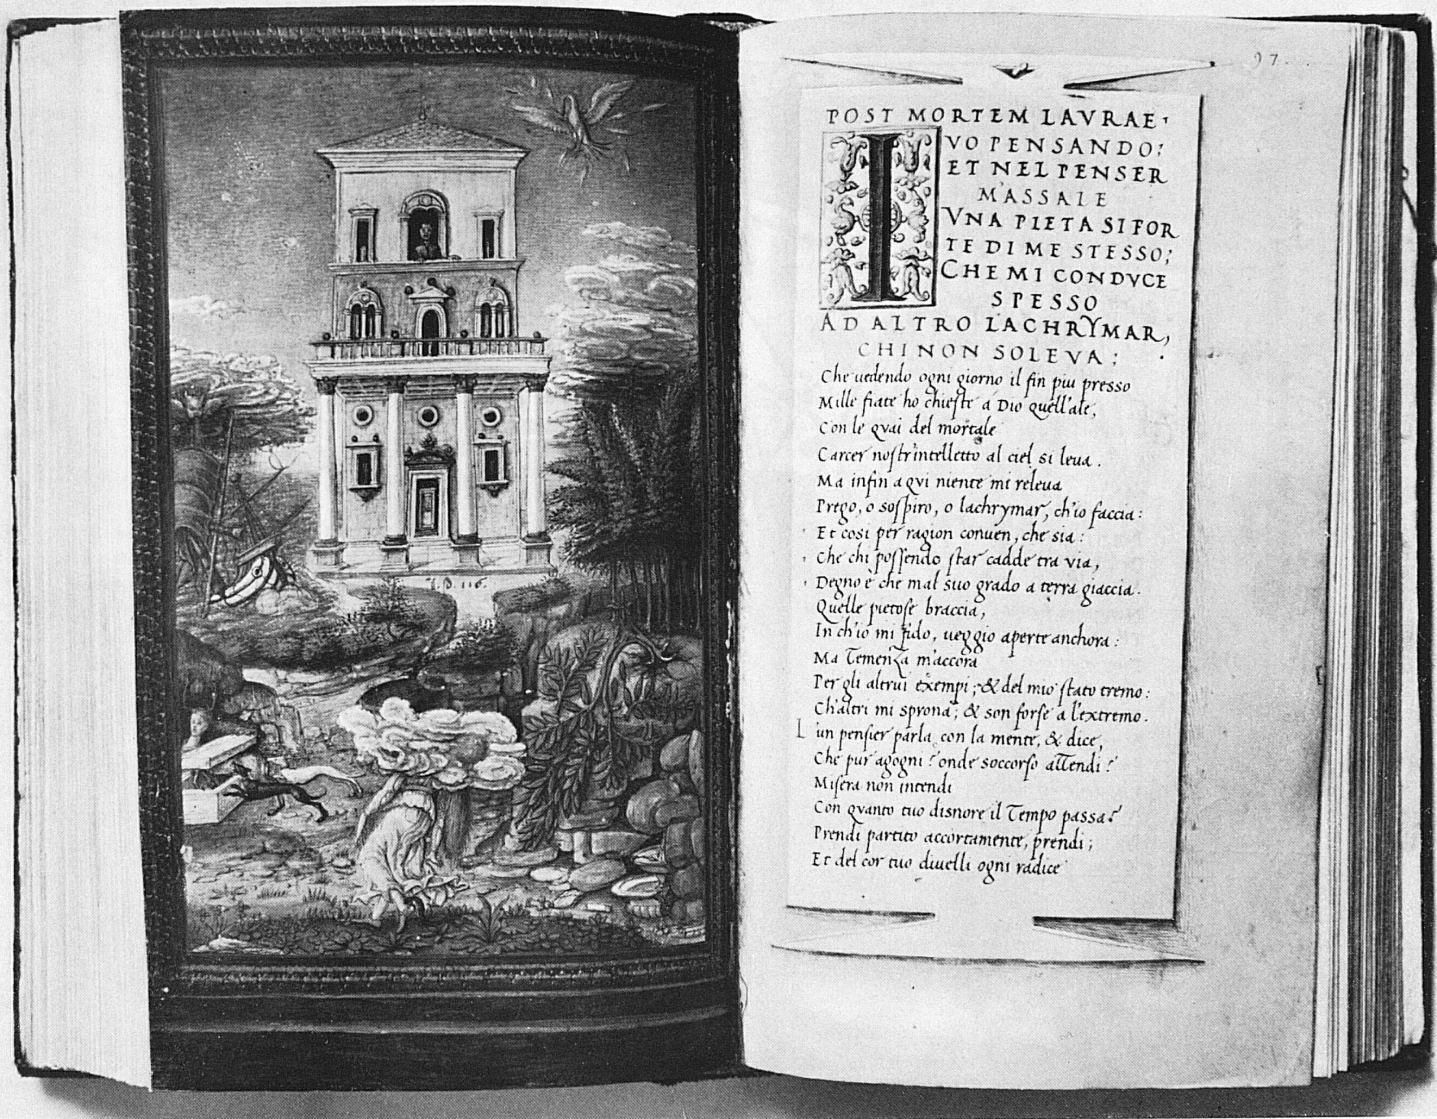 97.
POST MORTEM LAVRAE.
IVO PENSANDO;
ET NEL PENSER
M'ASSALE
VNA PIETA SI FOR
TE DI ME STESSO;
CHE MI CONDVCE
SPESSO
AD ALTRO LACHRYMAR,
CHI NON SOLEVA;
Che uedendo ogni giorno il fin piu presso
Mille fiate ho chieste a Dio quell'ale,
Con le qvai del mortale
Carcer nostr'intelletto al ciel si leua.
Ma infin a qvi niente mi releua
Prego, o sospiro, o lachrymar, ch'io faccia:
Et cosi per ragion conuen, che sia:
Che chi possendo star cadde tra via,
Degno è che mal suo grado a terra giaccia.
Quelle pietose braccia,
In ch'io mi fido, ueggio aperte anchora:
Ma Temenza m'accora
Per gli altrui exempi; & del mio stato tremo:
Ch'altri mi sprona; & son forse a l'extremo.
L'un pensier parla con la mente, & dice,
Che pur agogni? onde soccorso attendi?
Misera non intendi
Con qvanto tuo disnore il Tempo passa?
Prendi partito accortamente, prendi;
Et del cor tuo diuelli ogni radice